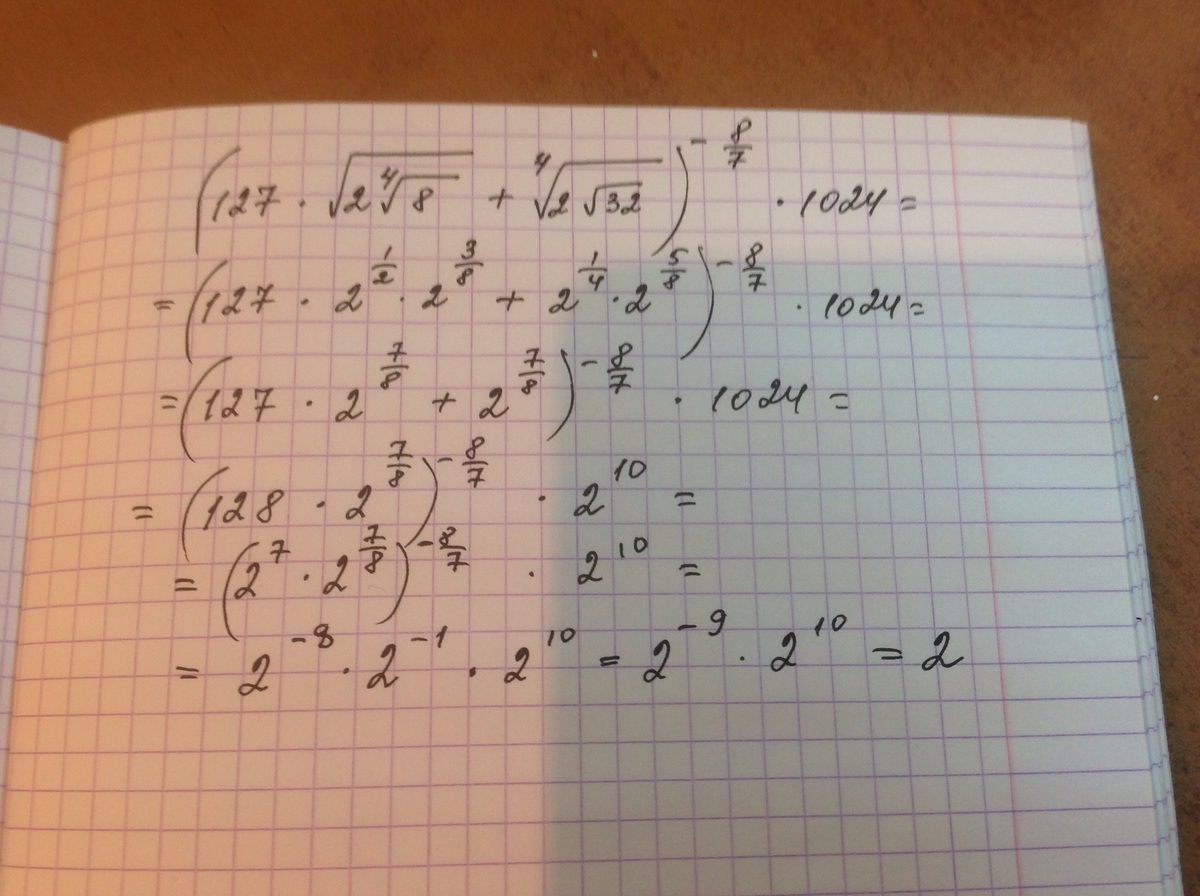 (127 · √(2 ⁴√8) + ⁴√(2 √32))^(-8/7) · 1024 =
= (127 · 2^(1/2) · 2^(3/8) + 2^(1/4) · 2^(5/8))^(-8/7) · 1024 =
= (127 · 2^(7/8) + 2^(7/8))^(-8/7) · 1024 =
= (128 · 2^(7/8))^(-8/7) · 2^10 =
= (2^7 · 2^(7/8))^(-8/7) · 2^10 =
= 2^(-8) · 2^(-1) · 2^10 = 2^(-9) · 2^10 = 2